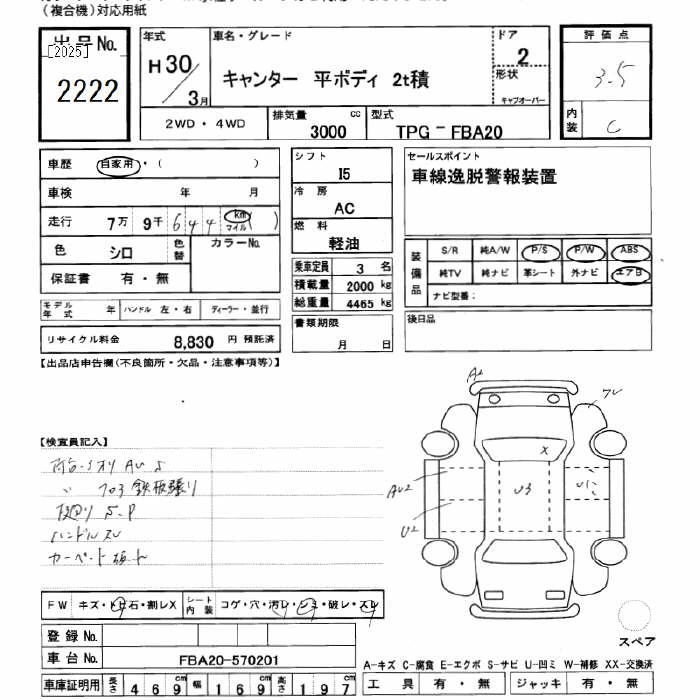 (複合機)対応用紙
出品No.
[2025]
2222
年式
H30/3月
車名・グレード
キャンター 平ボディ 2t積
ドア
2
形状
キャブオーバー
評価点
3.5
内装
C
2WD・4WD
排気量
3000
cc
型式
TPG-FBA20
車歴 自家用・( )
車検 年 月
走行 7万 9千 644 km マイル ( )
色 シロ 色替 カラーNo.
保証書 有・無
モデル年式 年 ハンドル 左・右 ディーラー・並行
リサイクル料金 8,830 円 預託済
シフト
I5
冷房
AC
燃料
軽油
乗車定員 3 名
積載量 2000 kg
総重量 4465 kg
書類期限
月 日
セールスポイント
車線逸脱警報装置
装備品
S/R 純A/W P/S P/W ABS
純TV 純ナビ 革シート 外ナビ エアB
ナビ型番:
後日品
【出品店申告欄(不良箇所・欠品・注意事項等)】
【検査員記入】
荷台・アオリ AU S
〃 フロア 鉄板張り
下廻り S.P
ハンドル スレ
カーペット
A2
X
U3
AU2
U2
FW キズ・トビ石・割レX シート内装 コゲ・穴・汚レ・シミ・破レ・スレ
登録No.
車台No. FBA20-570201
車庫証明用 長さ 469cm 幅 169cm 高さ 197
スペア
A-キズ C-腐食 E-エクボ S-サビ U-凹ミ W-補修 XX-交換済
工具 有・無 ジャッキ 有・無